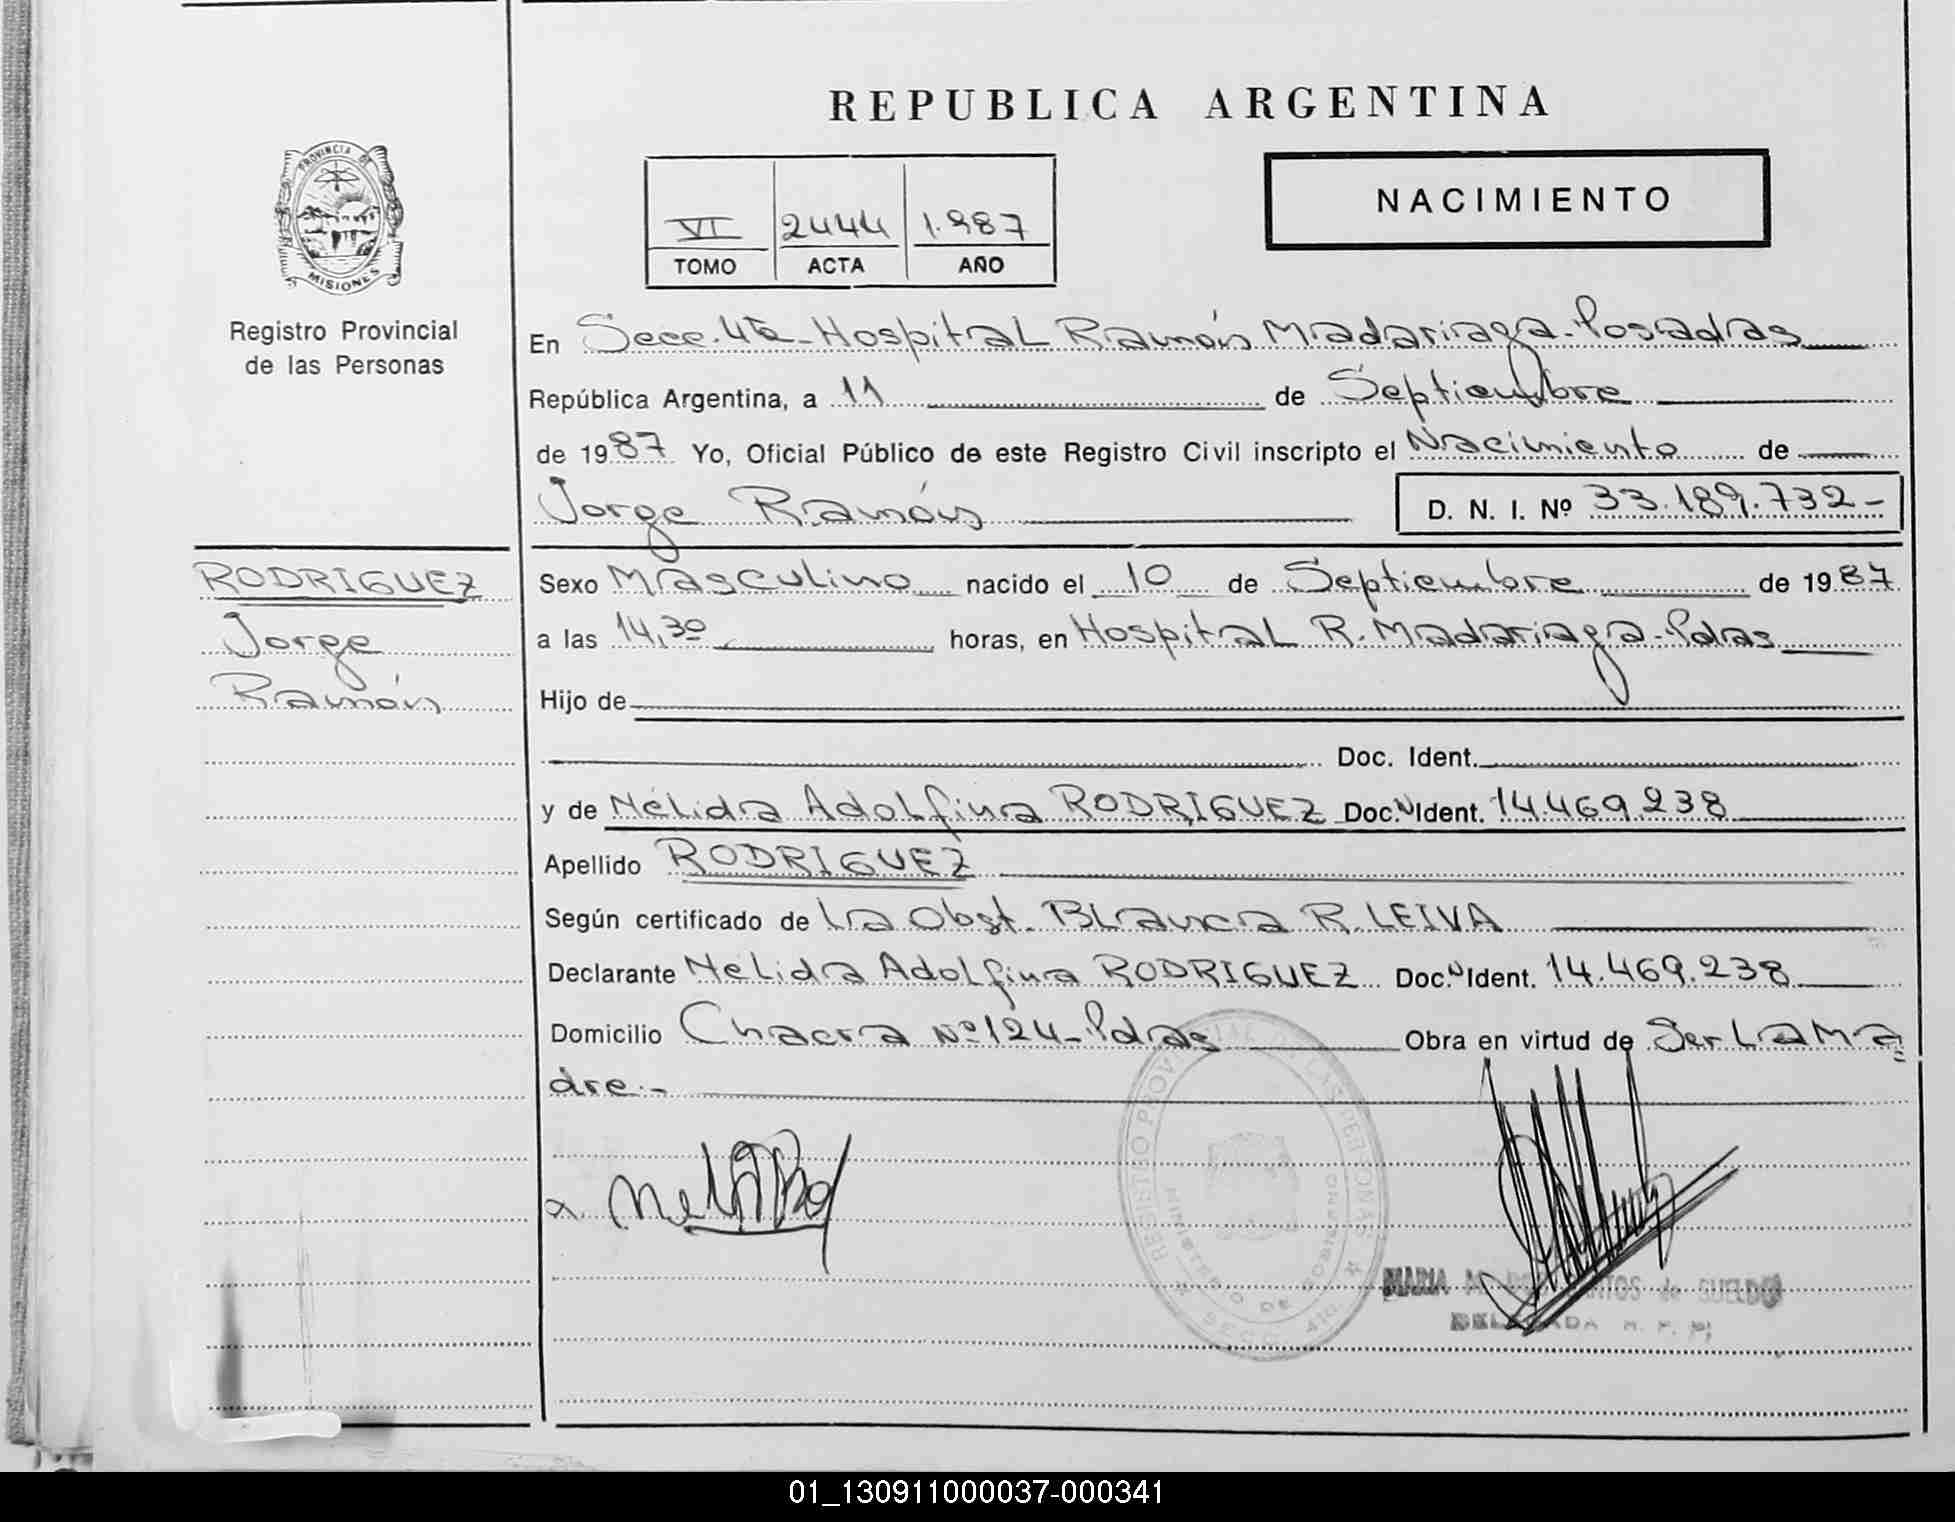 REPUBLICA ARGENTINA
PROVINCIA DE
MISIONES
Registro Provincial
de las Personas
VI 2444 1.987
TOMO ACTA AÑO
NACIMIENTO
En Secc. 4ta - Hospital Ramón Madariaga - Posadas
República Argentina, a 11 de Septiembre
de 1987 Yo, Oficial Público de este Registro Civil inscripto el Nacimiento de
Jorge Ramón D. N. I. Nº 33.189.732-
RODRIGUEZ
Jorge
Ramón
Sexo Masculino nacido el 10 de Septiembre de 1987
a las 14,30 horas, en Hospital R. Madariaga - Pdas
Hijo de
Doc. Ident.
y de Nélida Adolfina RODRIGUEZ Doc. N Ident. 14.469.238
Apellido RODRIGUEZ
Según certificado de La Obst. Blanca R. LEIVA
Declarante Nélida Adolfina RODRIGUEZ Doc. N Ident. 14.469.238
Domicilio Chacra Nº 124 - Pdas Obra en virtud de Ser La Ma
dre.-
REGISTRO PROVINCIAL DE LAS PERSONAS
MINISTERIO DE GOBIERNO
SECC. 4ta
MARIA de SUELDO
DELEGADA R. P. P.
01_130911000037-000341